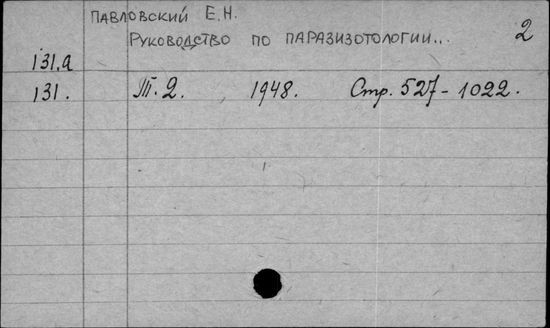 ПАВЛОВСКИЙ Е.Н.
РУКОВОДСТВО ПО ПАРАЗИЗОТОЛОГИИ...
2
131.а
131. Т.2. 1948. Стр. 527-1022.